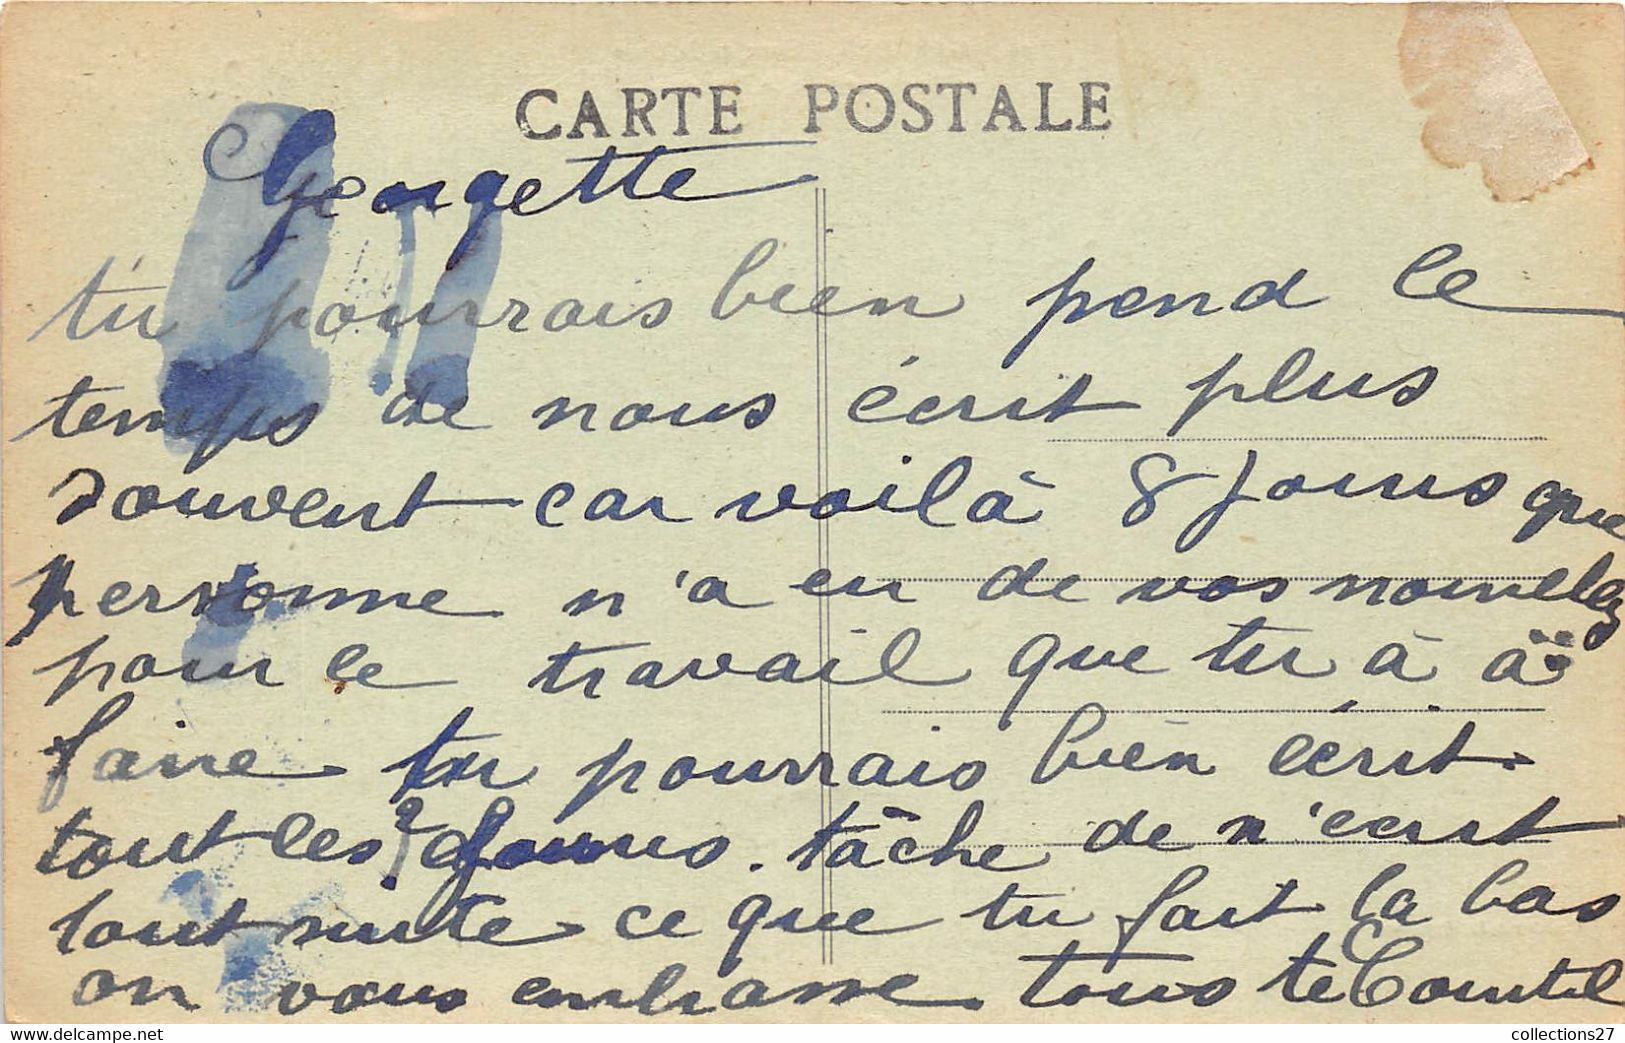 CARTE POSTALE
Georgette
tu pourrais bien pend le
temps de nous écrit plus
souvent car voilà 8 Jours que
personne n'a eu de vos nouvelles
pour le travail que tu à à
faire tu pourrais bien écrit
tout les 2 Jours. tâche de n'ecrit
tout suite ce que tu fait la bas
on vous embrasse tous
collections27